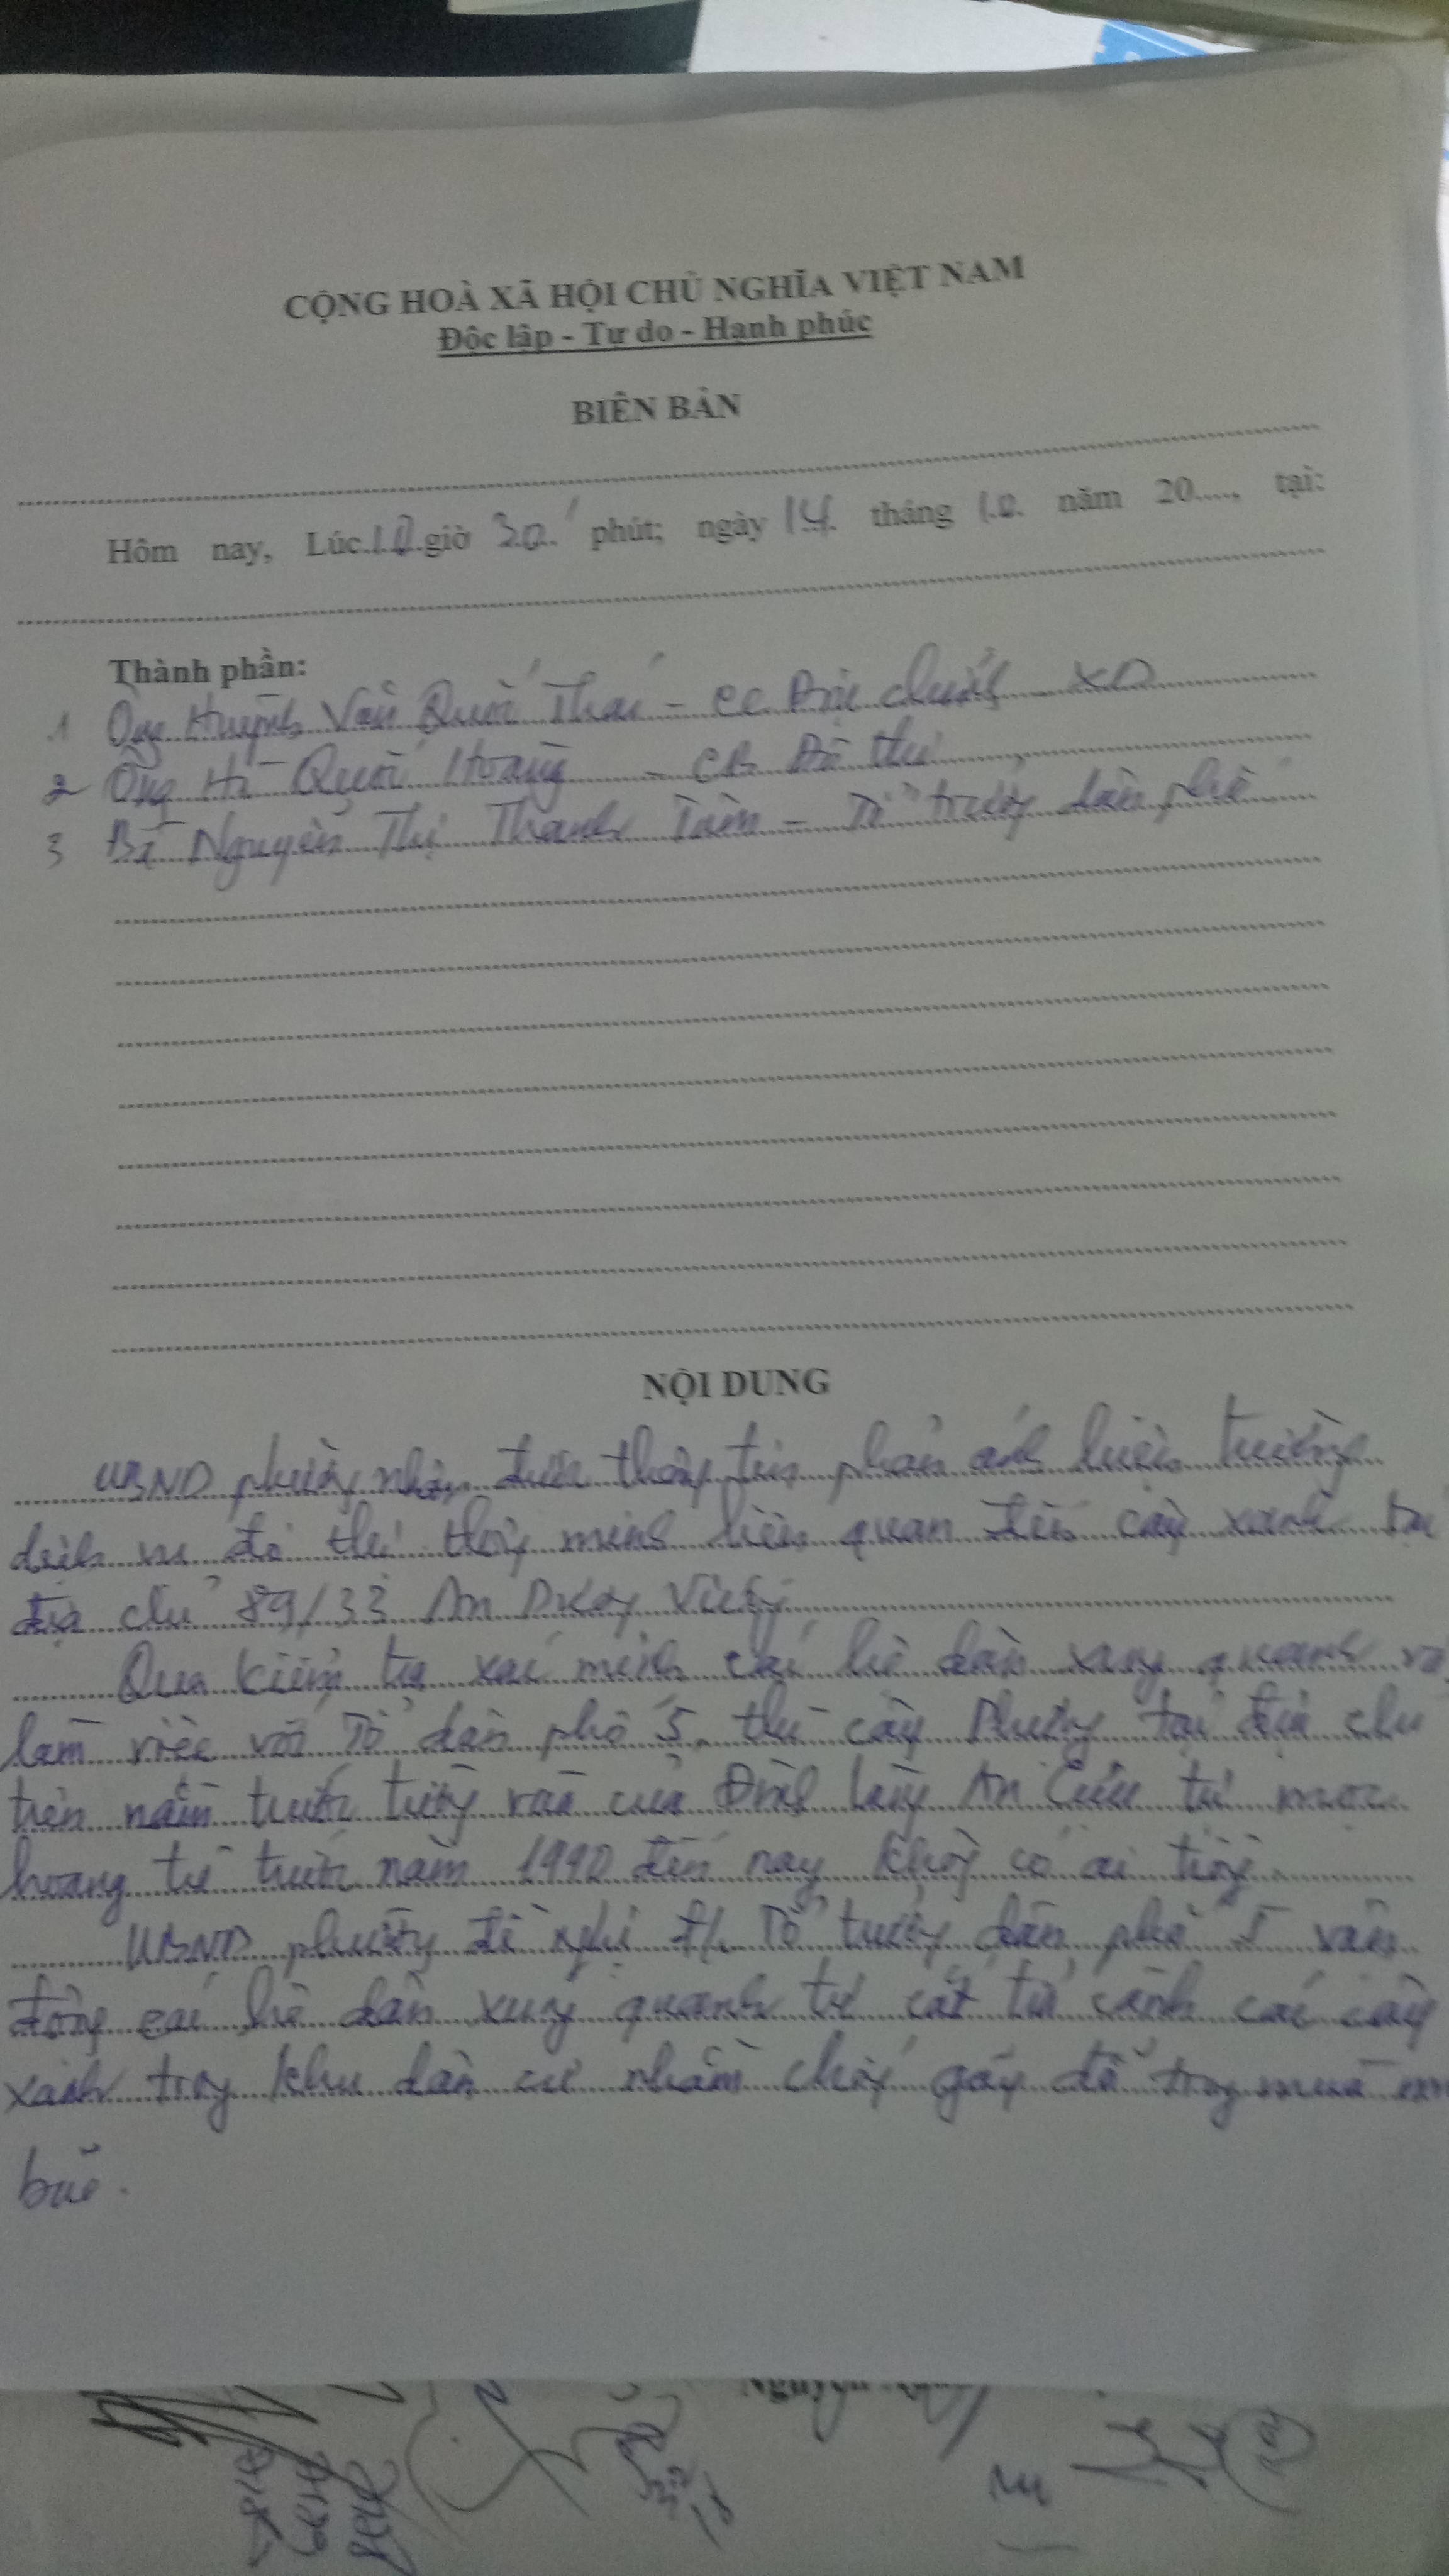 CỘNG HOÀ XÃ HỘI CHỦ NGHĨA VIỆT NAM
Độc lập - Tự do - Hạnh phúc
BIÊN BẢN
Hôm nay, Lúc 10 giờ 30' phút; ngày 14 tháng 10 năm 20...., tại:
Thành phần:
1 Ông Huỳnh Văn Quốc Thái - CC Địa chính XD
2 Ông Hồ Quốc Hoàng - CB Đô thị
3 Bà Nguyễn Thị Thanh Tâm - Tổ trưởng dân phố
NỘI DUNG
UBND phường nhận được thông tin phản ánh hiện trường
dịch vụ đô thị thông minh liên quan đến cây xanh tại
địa chỉ 89/33 An Dương Vương
Qua kiểm tra xác minh các hộ dân xung quanh và
làm việc với Tổ dân phố 5, thì cây Phượng tại địa chỉ
trên nằm trước tường rào của Đình làng An Cựu tự mọc
hoang từ trước năm 1990 đến nay không có ai trồng
UBND phường đề nghị đ/c Tổ trưởng dân phố 5 vận
động các hộ dân xung quanh tự cắt tỉa cành các cây
xanh trong khu dân cư nhằm chống gãy đổ trong mùa mưa
bão.